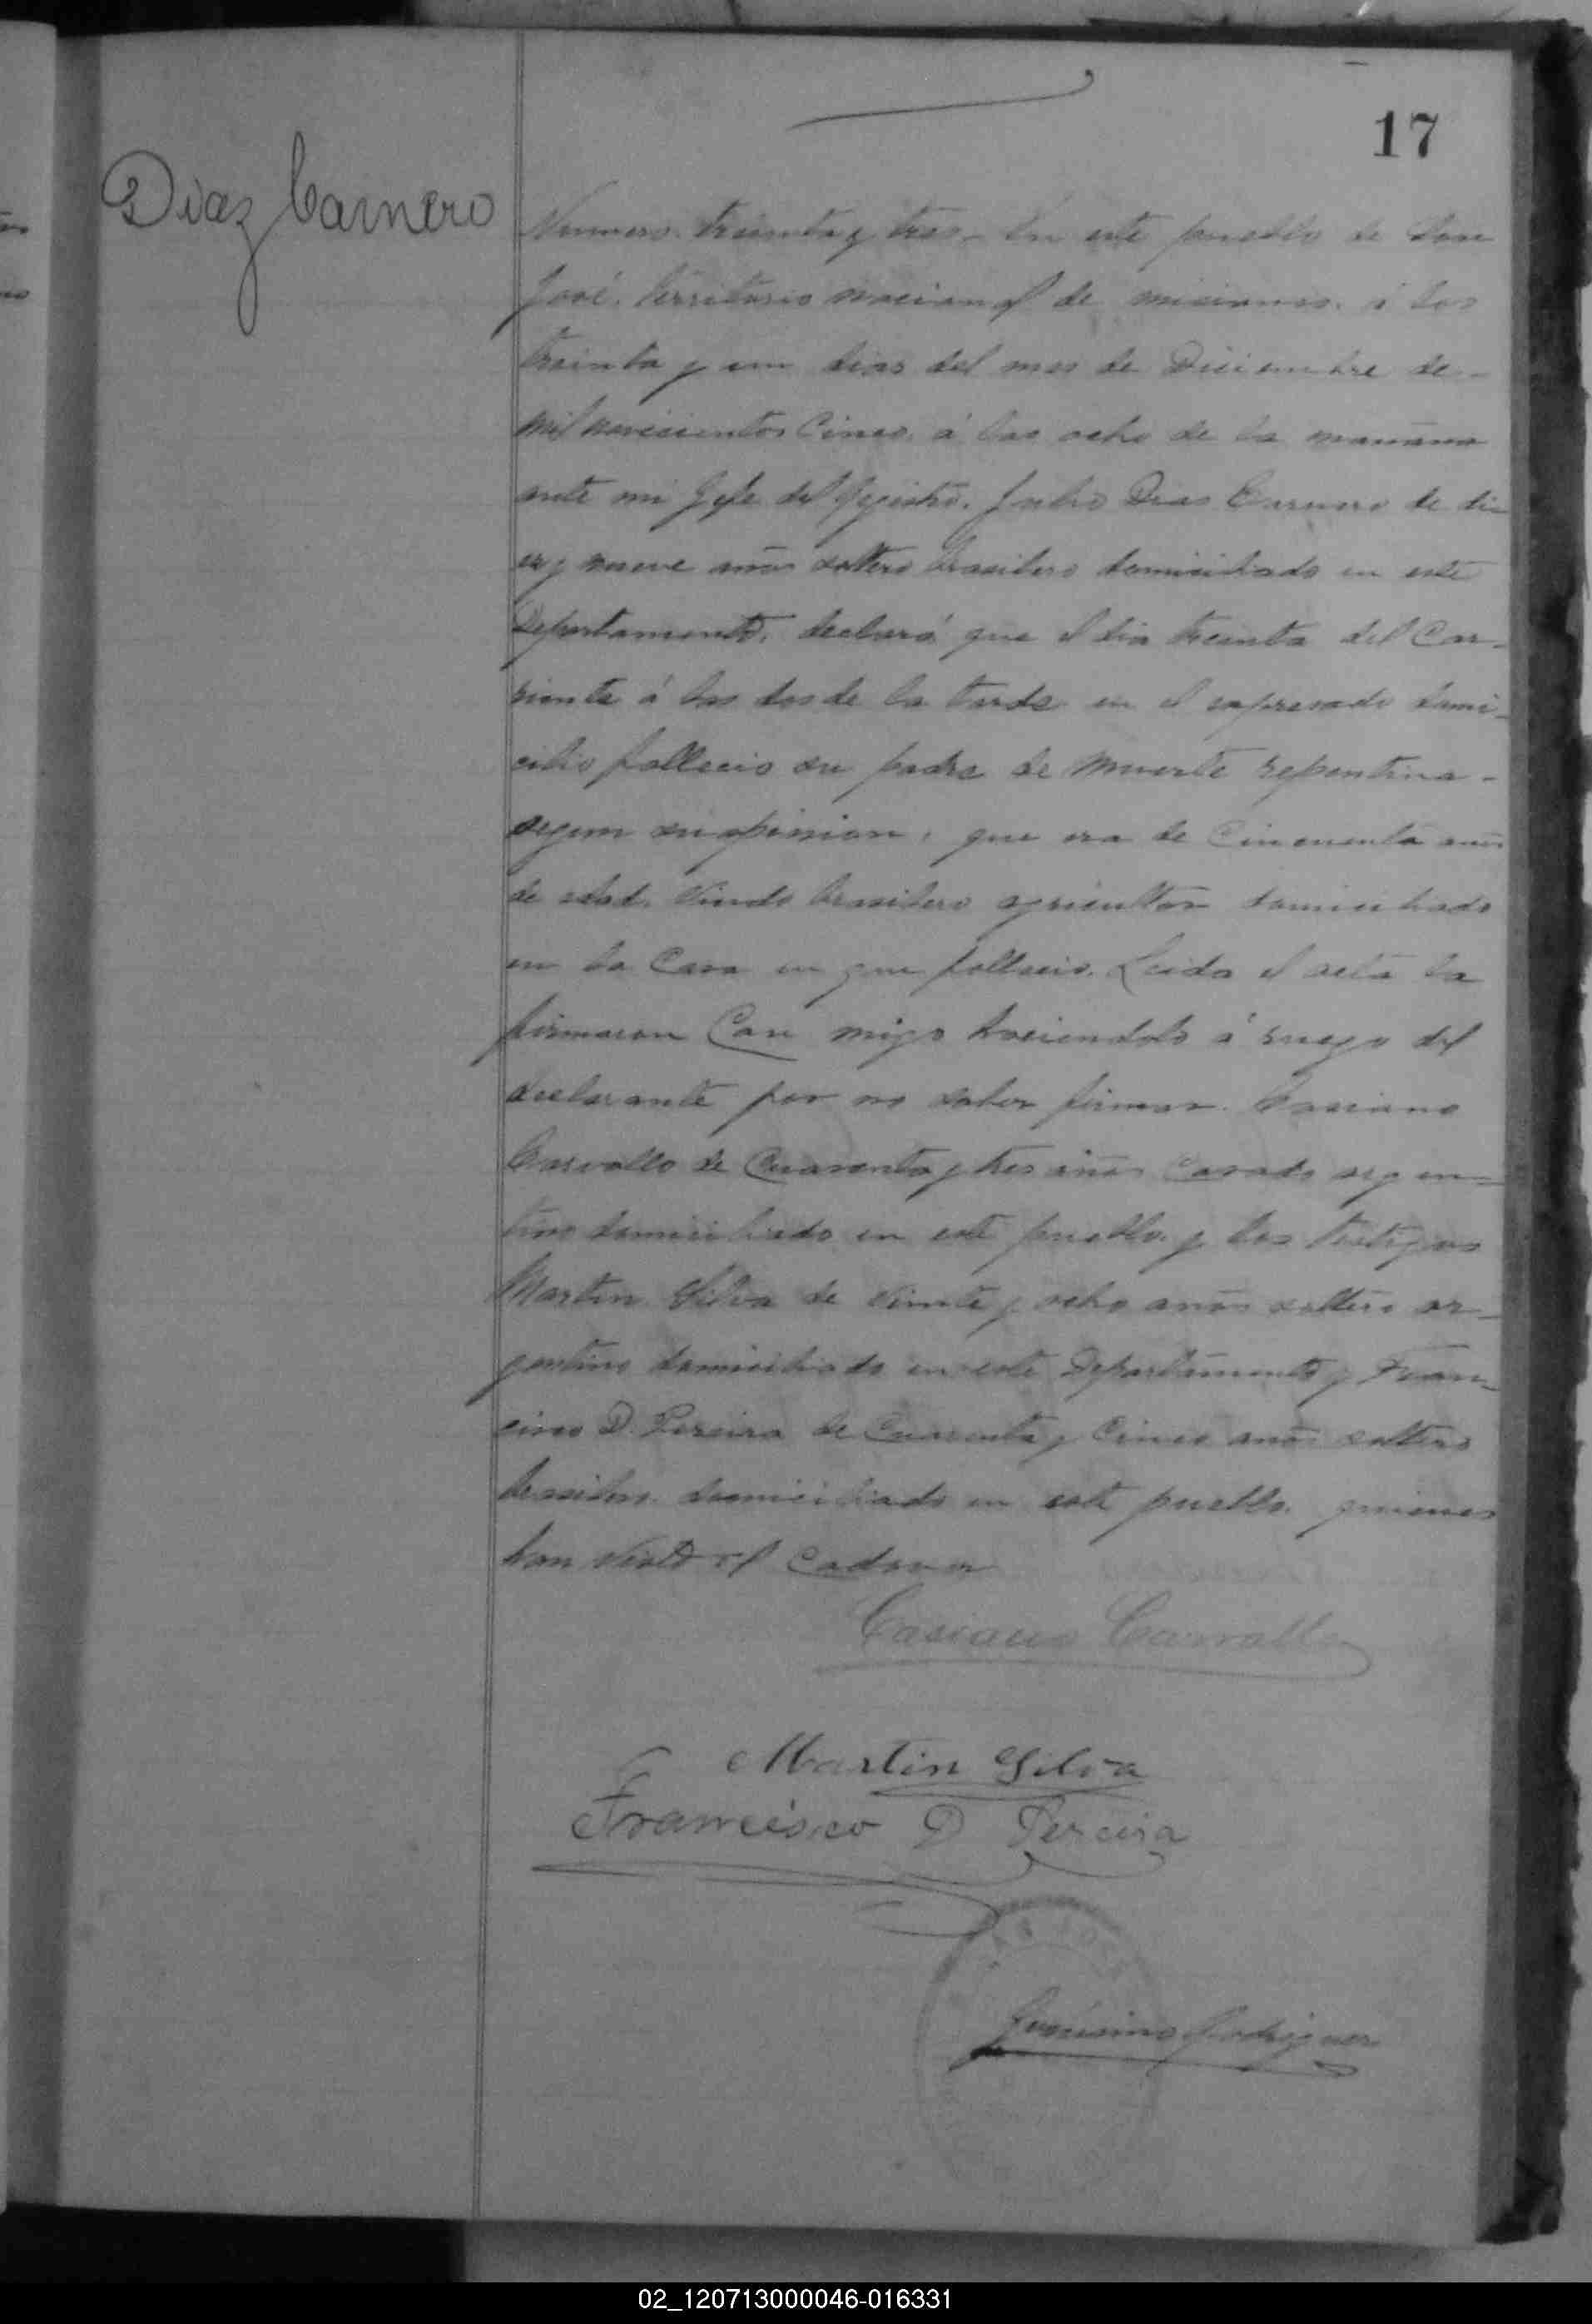 17
Diaz Carnero
Numero treinta y tres – En este pueblo de San
José, Territorio nacional de misiones. á los
treinta y un dias del mes de Diciembre de –
mil novecientos Cinco. á las ocho de la mañana
ante mi Gefe del Registro. Julio Dias Carnero de di–
ez y nueve años soltero brasilero domiciliado en este
Departamento, declaró que el dia treinta del Cor–
riente á las dos de la tarde en el expresado domi–
cilio fallecio su padre de muerte repentina –
segun su opinion, que era de Cincuenta años
de edad. Viudo brasilero agricultor domiciliado
en la Casa en que fallecio. Leida el acta la
firmaron Con migo haciendolo á ruego del
declarante por no saber firmar. Casiano
Carvallo de Cuarenta y tres años Casado argen–
tino domiciliado en este pueblo y los testigos
Martin Silva de Veinte y ocho años soltero ar–
gentino domiciliado en este Departamento y Fran–
cisco D. Pereira de Cuarenta y Cinco años soltero
brasilero domiciliado en este pueblo. quienes
han visto el Cadaver
Casiano Carvallo
Martin Silva
Francisco D Pereira
SAN JOSE
Gerónimo Rodriguez
02_120713000046-016331